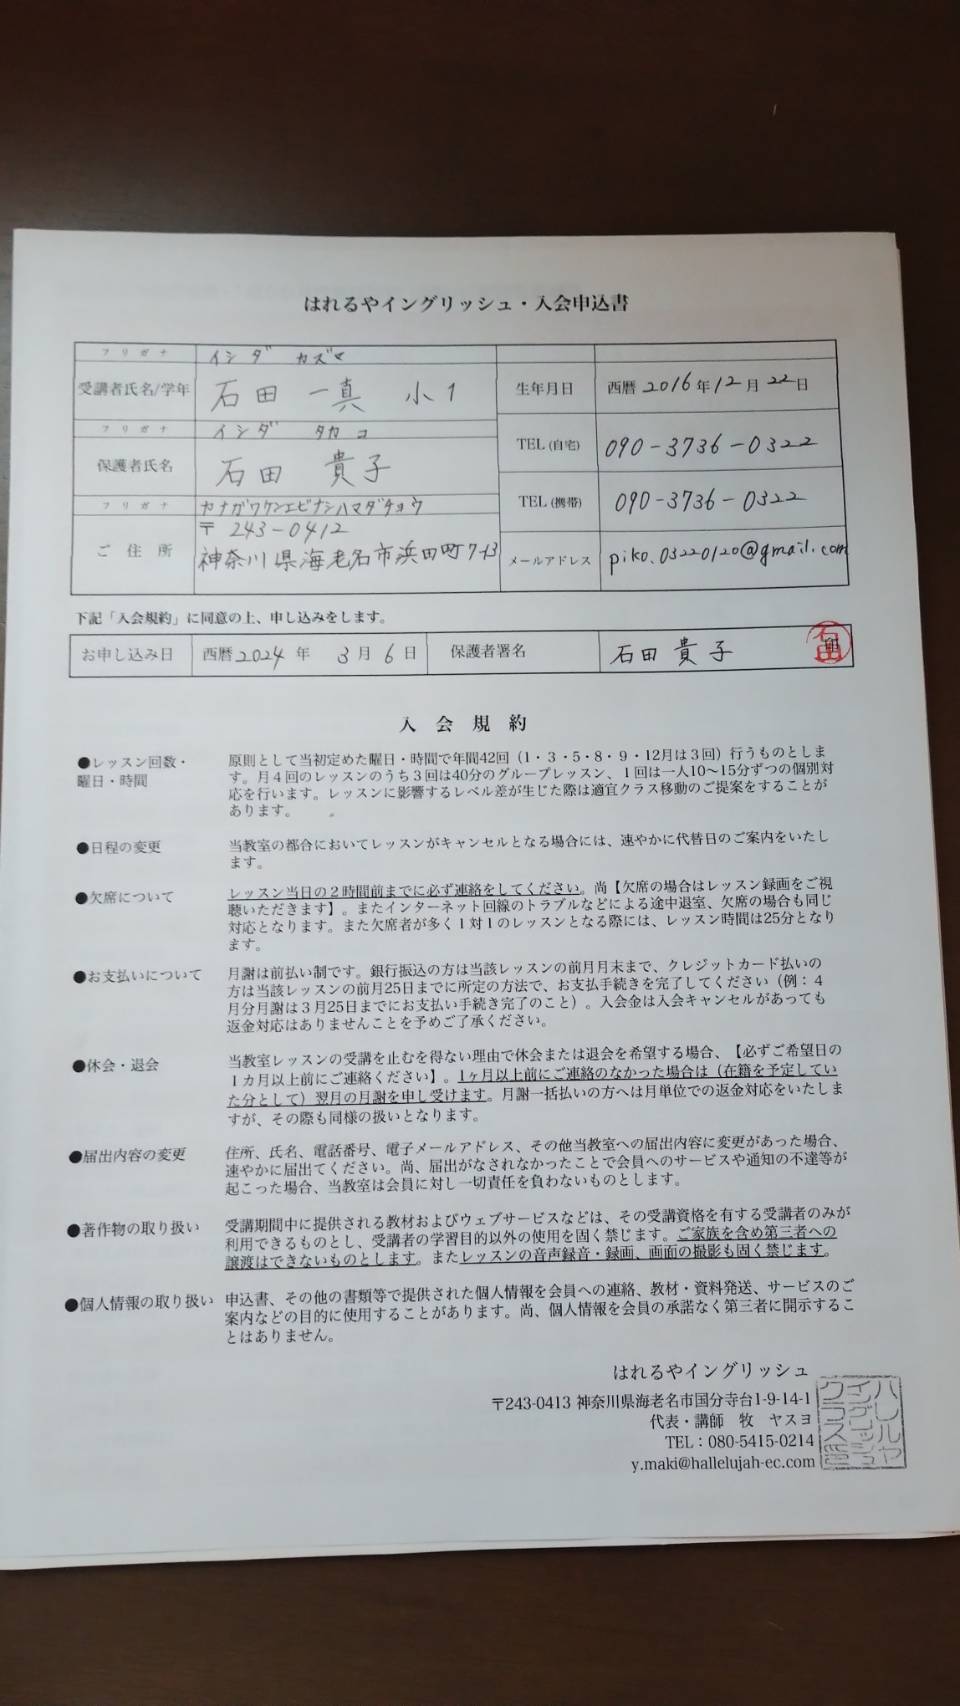 はれるやイングリッシュ・入会申込書
フリガナ イシダ カズマ
受講者氏名/学年 石田 一真 小1
生年月日 西暦 2016年12月22日
フリガナ イシダ タカコ
保護者氏名 石田 貴子
TEL(自宅) 090-3736-0322
フリガナ カナガワケンエビナシハマダチョウ
TEL(携帯) 090-3736-0322
ご住所 〒243-0412
神奈川県海老名市浜田町7-13
メールアドレス piko.03220120@gmail.com
下記「入会規約」に同意の上、申し込みをします。
お申し込み日 西暦2024年 3月6日 保護者署名 石田 貴子 印 石田
入会規約
●レッスン回数・曜日・時間
原則として当初定めた曜日・時間で年間42回（1・3・5・8・9・12月は3回）行うものとしま
す。月4回のレッスンのうち3回は40分のグループレッスン、1回は一人10〜15分ずつの個別対
応を行います。レッスンに影響するレベル差が生じた際は適宜クラス移動のご提案をすることが
あります。
●日程の変更
当教室の都合においてレッスンがキャンセルとなる場合には、速やかに代替日のご案内をいたし
ます。
●欠席について
レッスン当日の2時間前までに必ず連絡をしてください。尚【欠席の場合はレッスン録画をご視
聴いただきます】。またインターネット回線のトラブルなどによる途中退室、欠席の場合も同じ
対応となります。また欠席者が多く1対1のレッスンとなる際には、レッスン時間は25分となり
ます。
●お支払いについて
月謝は前払い制です。銀行振込の方は当該レッスンの前月月末まで、クレジットカード払いの
方は当該レッスンの前月25日までに所定の方法で、お支払手続きを完了してください（例：4
月分月謝は3月25日までにお支払い手続き完了のこと）。入会金は入会キャンセルがあっても
返金対応はありませんことを予めご了承ください。
●休会・退会
当教室レッスンの受講を止むを得ない理由で休会または退会を希望する場合、【必ずご希望日の
1カ月以上前にご連絡ください】。1ヶ月以上前にご連絡のなかった場合は（在籍を予定してい
た分として）翌月の月謝を申し受けます。月謝一括払いの方へは月単位での返金対応をいたしま
すが、その際も同様の扱いとなります。
●届出内容の変更
住所、氏名、電話番号、電子メールアドレス、その他当教室への届出内容に変更があった場合、
速やかに届出てください。尚、届出がなされなかったことで会員へのサービスや通知の不達等が
起こった場合、当教室は会員に対し一切責任を負わないものとします。
●著作物の取り扱い
受講期間中に提供される教材およびウェブサービスなどは、その受講資格を有する受講者のみが
利用できるものとし、受講者の学習目的以外の使用を固く禁じます。ご家族を含め第三者への
譲渡はできないものとします。またレッスンの音声録音・録画、画面の撮影も固く禁じます。
●個人情報の取り扱い
申込書、その他の書類等で提供された個人情報を会員への連絡、教材・資料発送、サービスのご
案内などの目的に使用することがあります。尚、個人情報を会員の承諾なく第三者に開示するこ
とはありません。
はれるやイングリッシュ
〒243-0413 神奈川県海老名市国分寺台1-9-14-1
代表・講師 牧 ヤスヨ
TEL：080-5415-0214
y.maki@hallelujah-ec.com
ハレルヤ
イングリッシュ
クラス印